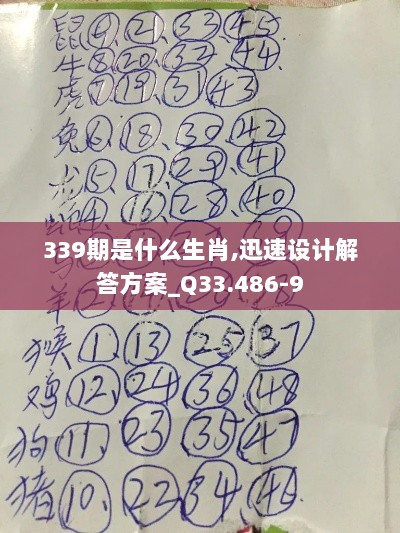 鼠⑨,㉑,㉝,㊺
牛⑧⑳,㉜,㊹
虎⑦⑲,㉛㊸
兔⑥,⑱,㉚,㊷
龙⑤,⑰,㉙,㊶
④,⑯,㉘,㊵
339期是什么生肖,迅速设计解
答方案_Q33.486-9
羊
猴①,⑬㉕㊲
鸡⑫,㉔㊱,㊽
狗⑪,㉓㉟,㊼
猪⑩,㉒㉞,㊻